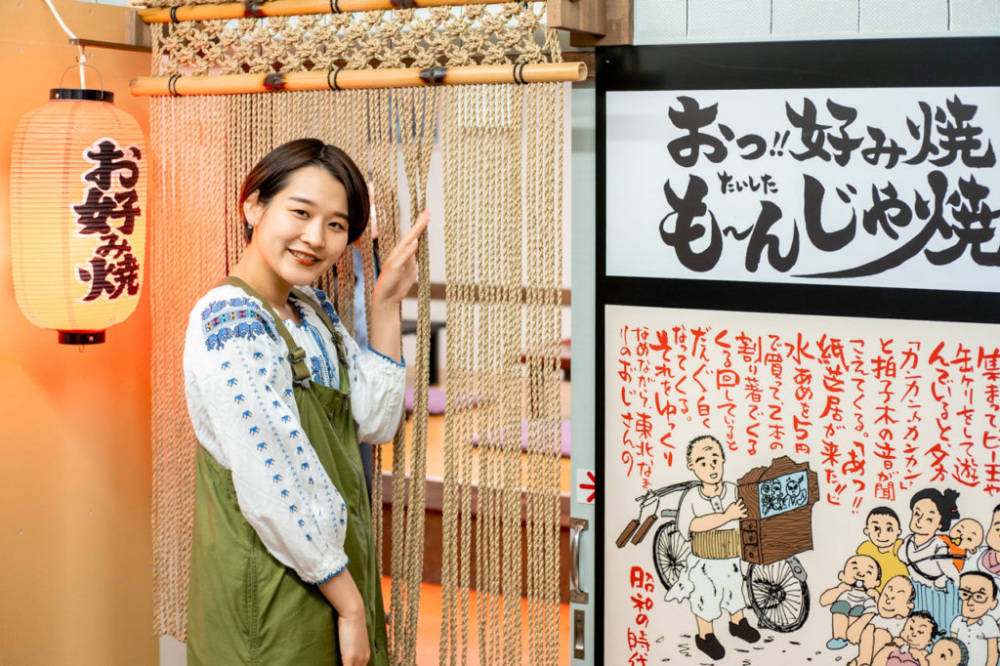 お好み焼
おっ!!好み焼
たいした
も〜んじゃ焼
集まってビー玉や
缶ケリをして遊
んでいると夕方
「カンカンカンカン」
と拍子木の音が聞
こえてくる。「あっ!!
紙芝居が来た!!」
水あめを5円
で買って2本の
割り箸でくる
くる回していると
だん〲白く
なってくる。
それをゆっくり
なめながら、東北なま
りのおじさんの
昭和の時代